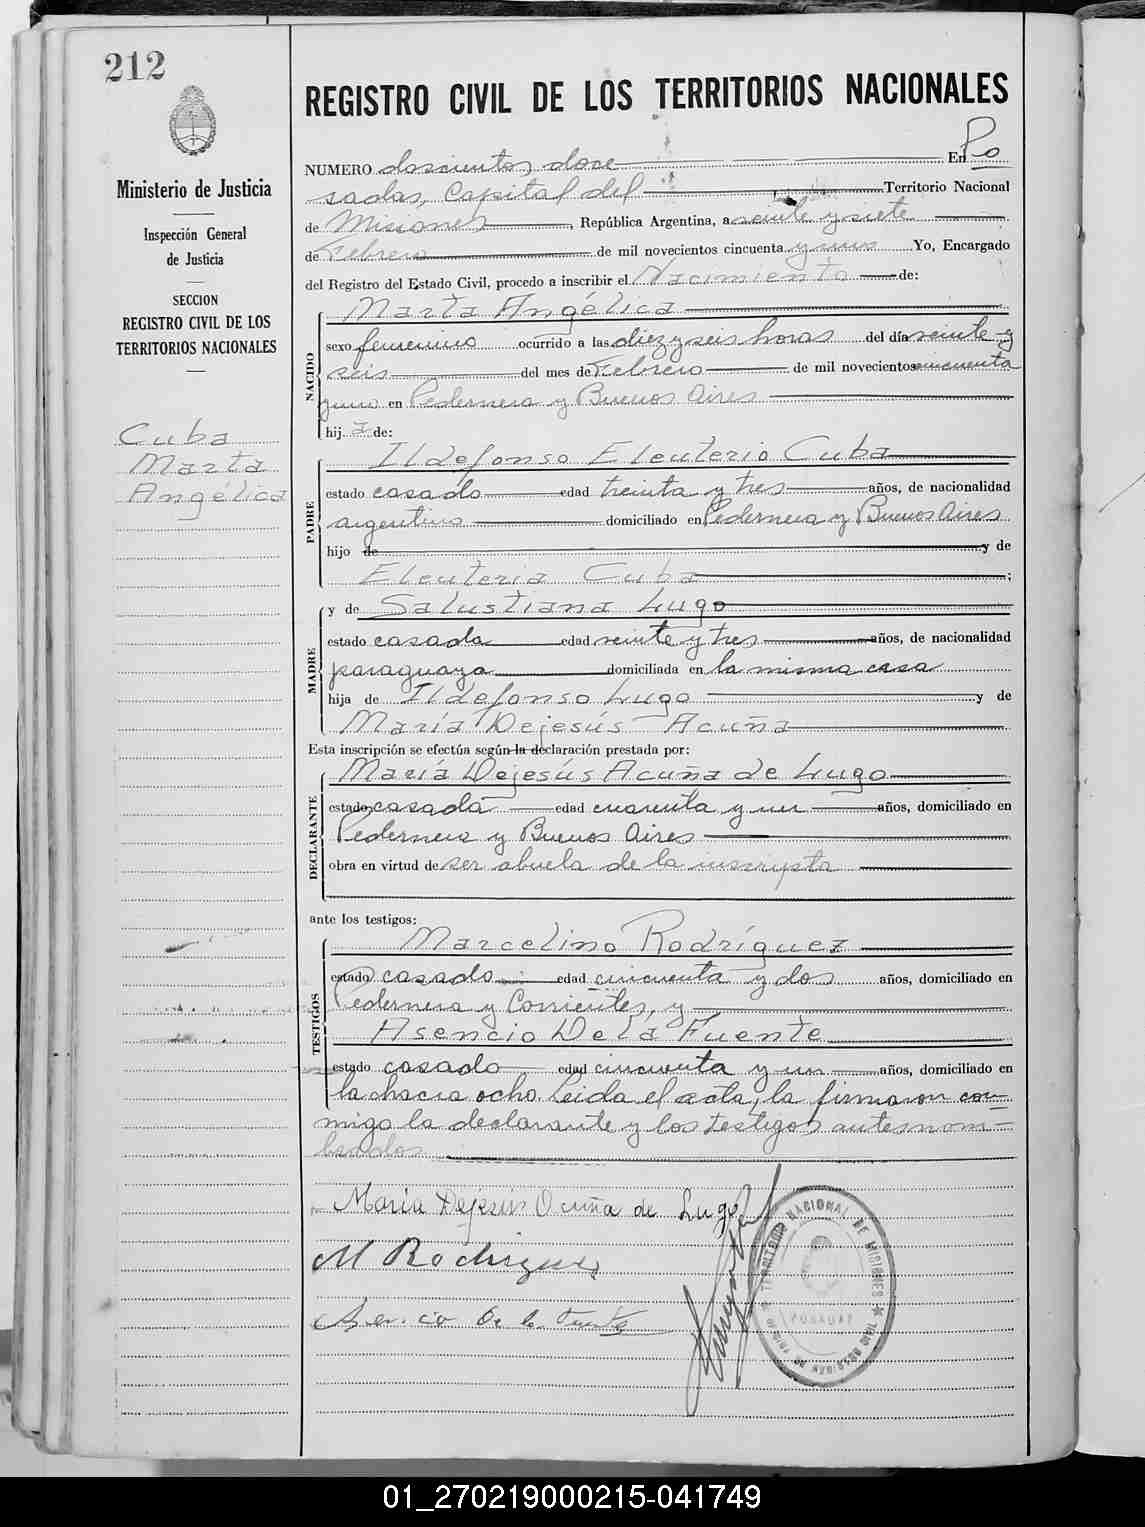 212
Ministerio de Justicia
Inspección General
de Justicia
SECCION
REGISTRO CIVIL DE LOS
TERRITORIOS NACIONALES
Cuba
Marta
Angélica
REGISTRO CIVIL DE LOS TERRITORIOS NACIONALES
NUMERO doscientos doce En Po
sadas, Capital del Territorio Nacional
de Misiones, República Argentina, a veinte y siete
de Febrero de mil novecientos cincuenta y uno Yo, Encargado
del Registro del Estado Civil, procedo a inscribir el Nacimiento de:
NACIDO
Marta Angélica
sexo femenino ocurrido a las diez y seis horas del día veinte y
seis del mes de Febrero de mil novecientos cincuenta
y uno en Pedernera y Buenos Aires
hij a de:
PADRE
Ildefonso Eleuterio Cuba
estado casado edad treinta y tres años, de nacionalidad
argentino domiciliado en Pedernera y Buenos Aires
hijo de y de
Eleuteria Cuba ;
MADRE
y de Salustiana Lugo
estado casada edad veinte y tres años, de nacionalidad
paraguaya domiciliada en la misma casa
hija de Ildefonso Lugo y de
María Dejesús Acuña
Esta inscripción se efectúa según la declaración prestada por:
DECLARANTE
María Dejesús Acuña de Lugo
estado casada edad cuarenta y un años, domiciliado en
Pedernera y Buenos Aires
obra en virtud de ser abuela de la inscripta
ante los testigos:
TESTIGOS
Marcelino Rodríguez
estado casado edad cincuenta y dos años, domiciliado en
Pedernera y Corrientes, y
Asencio De la Fuente
estado casado edad cincuenta y un años, domiciliado en
la chacra ocho. Leida el acta, la firmaron con=
migo la declarante y los testigos antesnom=
brados
María Dejesús Acuña de Lugo
M Rodriguez
Asencio De la Fuente
TERRITORIO NACIONAL DE MISIONES
POSADAS
01_270219000215-041749